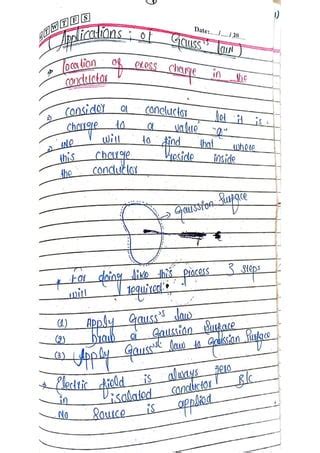 NOTES
Date: __/__/20
(Applications: of Gauss's law)
Location of exess charge in the
conductor
consider a conductor let it is
charge to a value "q"
we will to find that where
this charge reside inside
the conductor
Gaussian Surface
For doing like this process 3 steps
will required:
(1) Apply Gauss's law
(2) Draw a Gaussian Surface
(3) Apply Gauss's law to Gaussian Surface
Electric field is always zero
in isolated conductor B/c
No Source is applied